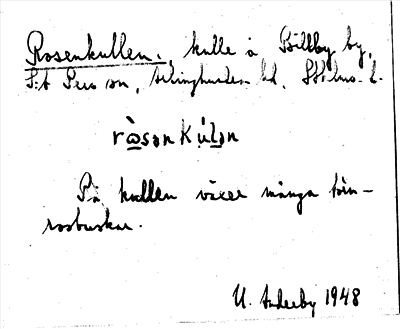 Rosenkullen., kulle å Billby by,
S:t Pers sn, Ærlinghundra hd, Sthlms l.
rɷ̀sənkɷ́lən
På kullen växer många törn-
rosbuskar.
U. Anderby 1948